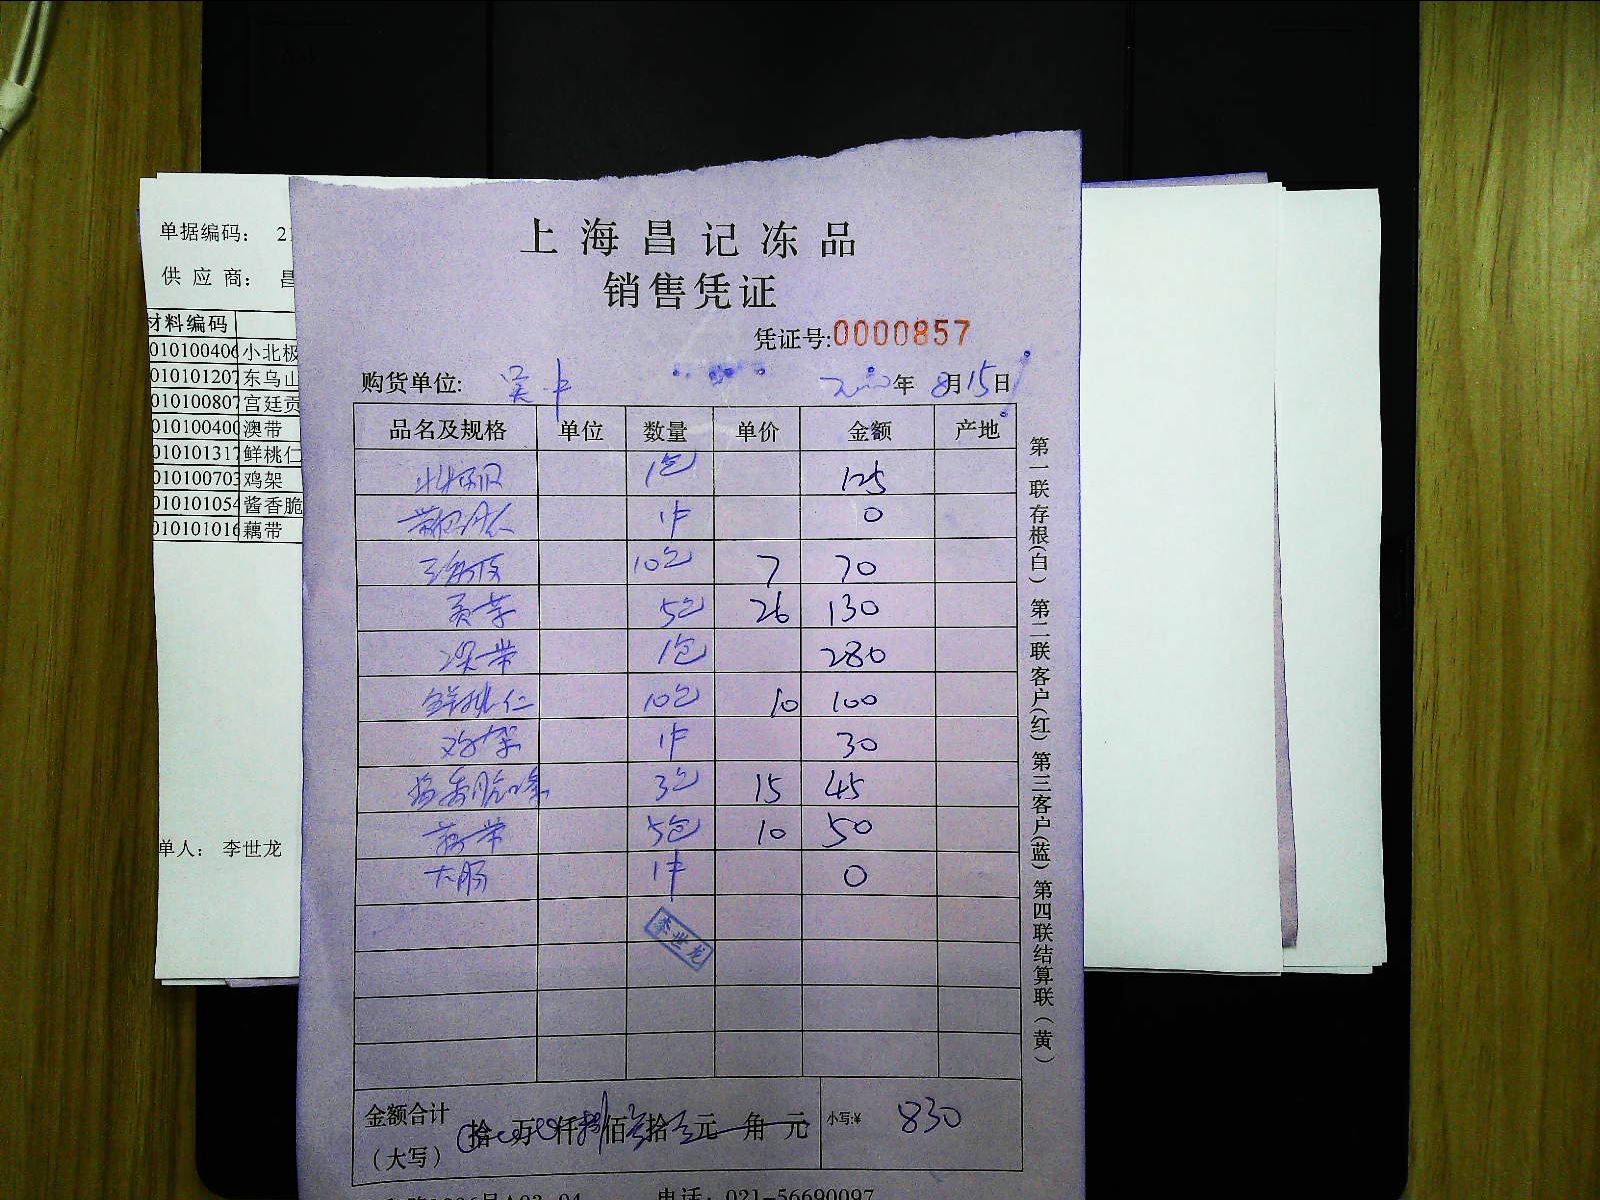 上海昌记冻品
销售凭证
凭证号:0000857
购货单位: 年 8月15日
品名及规格 单位 数量 单价 金额 产地
北极贝 1包 125
1件 0
10包 7 70
贡菜 5包 26 130
澳带 1包 280
鲜桃仁 10包 10 100
鸡架 1件 30
酱香脆 3包 15 45
藕带 5包 10 50
大肠 1件 0
李世龙
金额合计
(大写) 拾 万 仟捌佰叁拾 元 角 元 小写:¥ 830
电话: 021-56690097
第一联存根(白) 第二联客户(红) 第三客户(蓝) 第四联结算联(黄)
单据编码: 2
供应商: 昌
材料编码
010100406 小北极
010101207 东乌山
010100807 宫廷贡
010100400 澳带
010101317 鲜桃仁
010100703 鸡架
010101054 酱香脆
010101016 藕带
单人: 李世龙